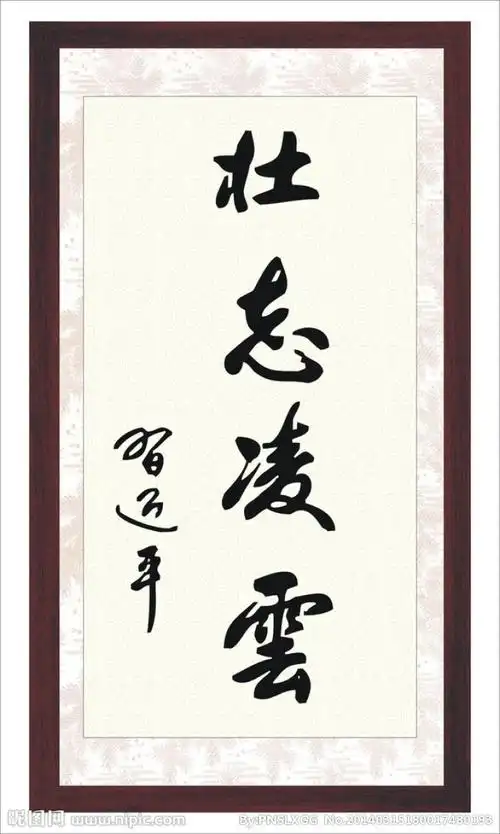 壮志凌雲
習近平
昵图网 www.nipic.com
By:PNSLXGG No.20140315180017480193